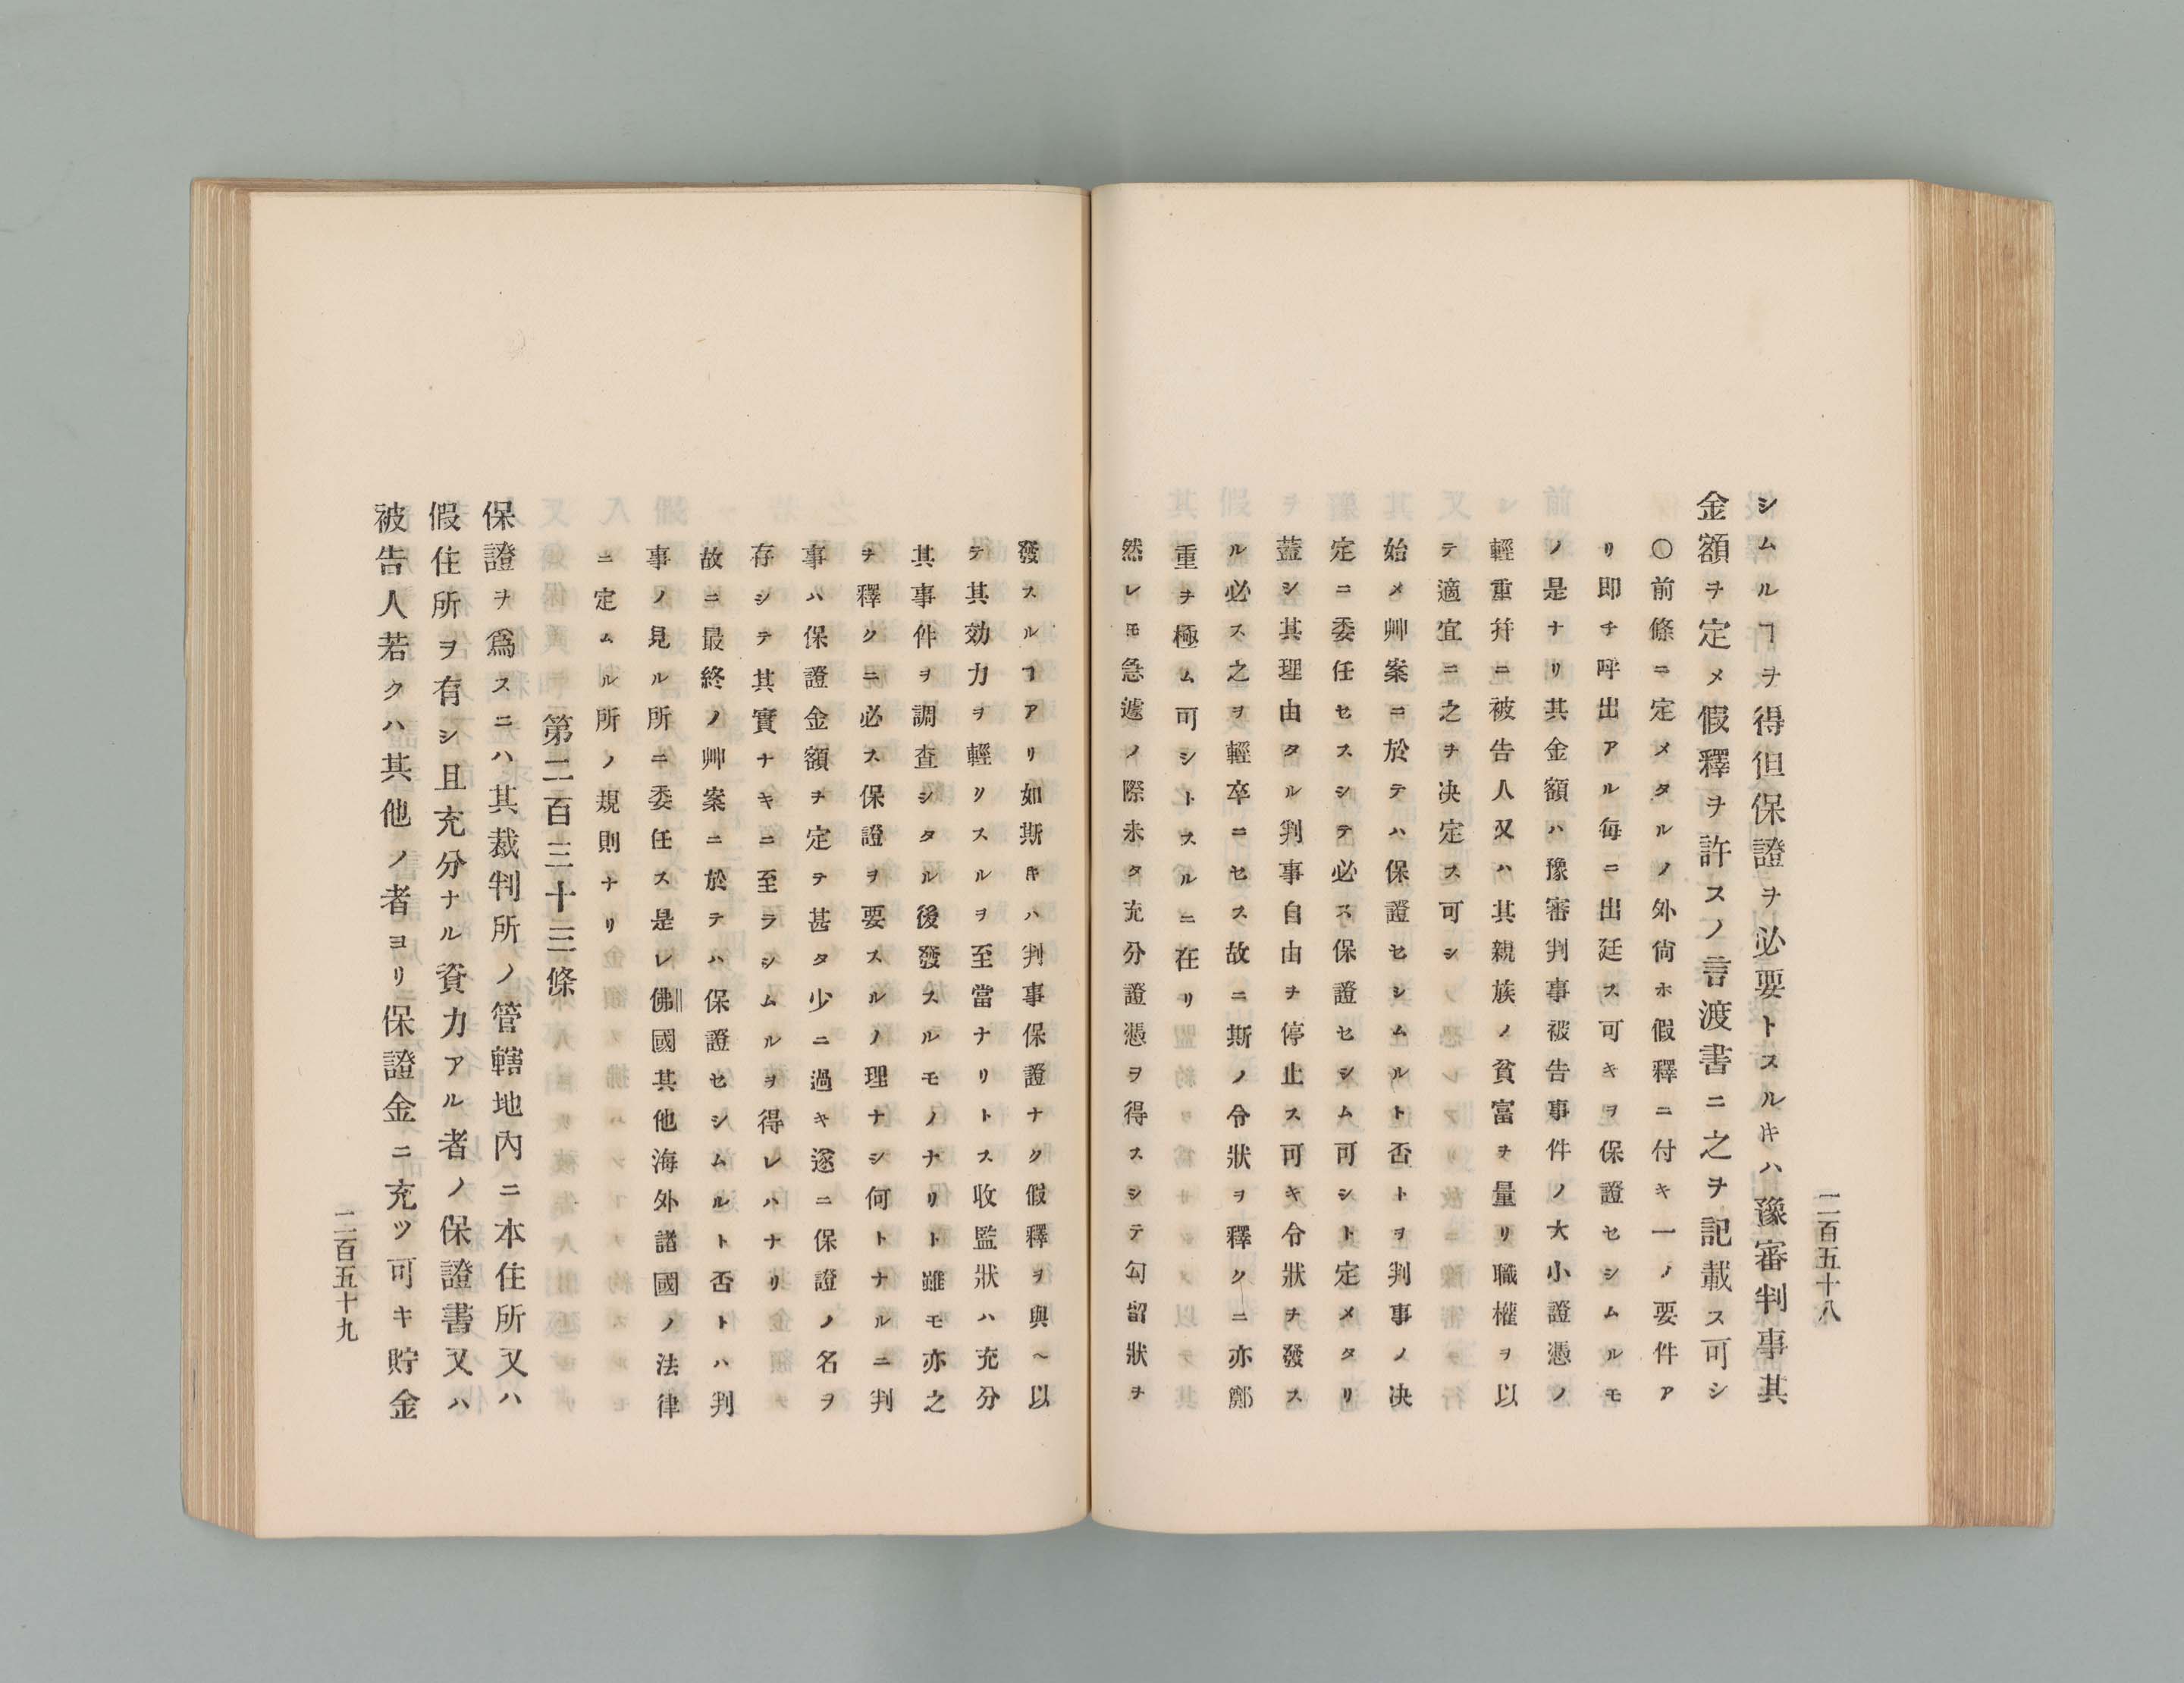 二百五十八
シムルヿヲ得但保證ヲ必要トスルキハ豫審判事其
金額ヲ定メ假釋ヲ許スノ言渡書ニ之ヲ記載ス可シ
〇前條ニ定メタルノ外尙ホ假釋ニ付キ一ノ要件ア
リ即チ呼出アル毎ニ出廷ス可キヲ保證セシムルモ
ノ是ナリ其金額ハ豫審判事被告事件ノ大小證憑ノ
輕重幷ニ被告人又ハ其親族ノ貧富ヲ量リ職權ヲ以
テ適宜ニ之ヲ决定ス可シ
始メ艸案ニ於テハ保證セシムルト否トヲ判事ノ决
定ニ委任セスシテ必ス保證セシム可シト定メタリ
蓋シ其理由タル判事自由ヲ停止ス可キ令狀ヲ發ス
ル必ス之ヲ輕卒ニセス故ニ斯ノ令狀ヲ釋クニ亦鄭
重ヲ極ム可シトスルニ在リ
然レモ急遽ノ際未タ充分證憑ヲ得スシテ勾留狀ヲ
發スルヿアリ如斯キハ判事保證ナク假釋ヲ與ヘ以
テ其効力ヲ輕リスルヲ至當ナリトス收監狀ハ充分
其事件ヲ調査シタル後發スルモノナリト雖モ亦之
ヲ釋クニ必ス保證ヲ要スルノ理ナシ何トナルニ判
事ハ保證金額ヲ定テ甚タ少ニ過キ遂ニ保證ノ名ヲ
存シテ其實ナキニ至ラシムルヲ得レハナリ
故ニ最終ノ艸案ニ於テハ保證セシムルト否トハ判
事ノ見ル所ニ委任ス是レ佛國其他海外諸國ノ法律
ニ定ムル所ノ規則ナリ
第二百三十三條
保證ヲ爲スニハ其裁判所ノ管轄地內ニ本住所又ハ
假住所ヲ有シ且充分ナル資力アル者ノ保證書又ハ
被告人若クハ其他ノ者ヨリ保證金ニ充ツ可キ貯金
二百五十九